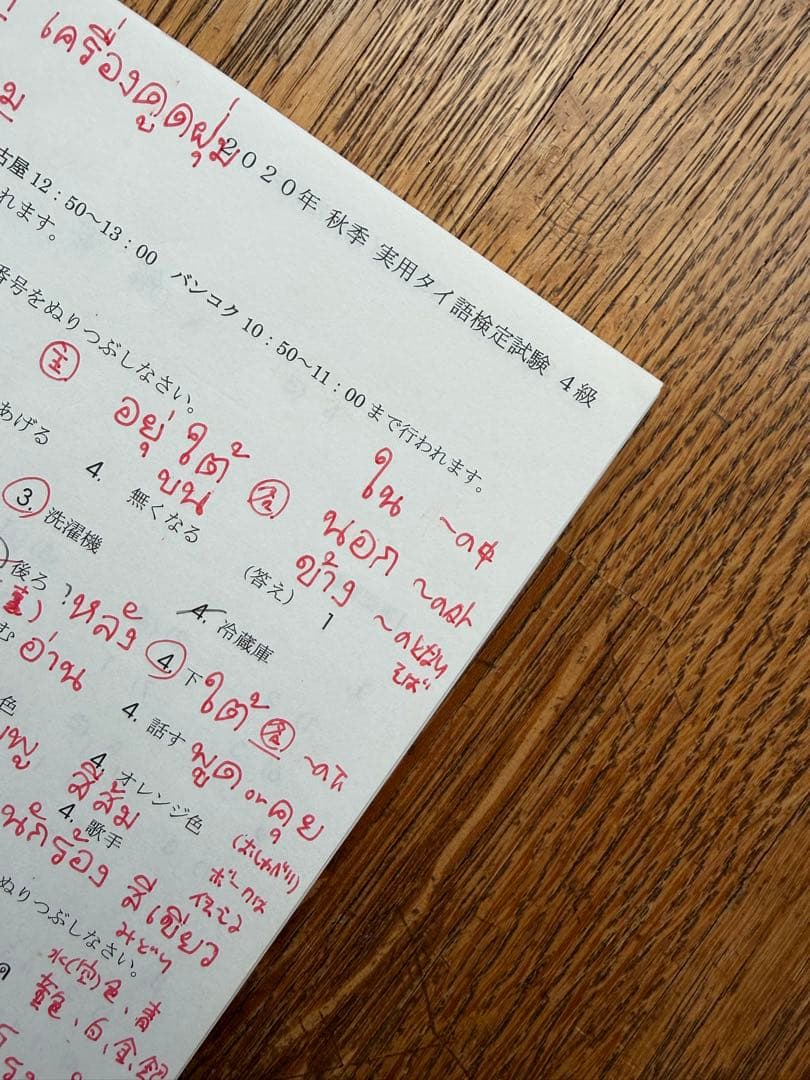 เครื่องดูดฝุ่น
2020年 秋季 実用タイ語検定試験 4級
古屋 12:50～13:00 バンコク 10:50～11:00 まで行われます。
れます。
番号をぬりつぶしなさい。
主
อยู่ ใต้ ใน
บน นอก ～の中
ข้าง ～の外
あげる 4. 無くなる (答え) 1
3. 洗濯機 4. 冷蔵庫
後ろ ? หลัง 4 下 ใต้
む อ่าน 4. 話す พูด or คุย
色 4. オレンジ色 (おしゃべり)
สีส้ม
4. 歌手
นักร้อง สีเขียว
みどり
ぬりつぶしなさい。
水(空)色、青
黄色、白、金、銀